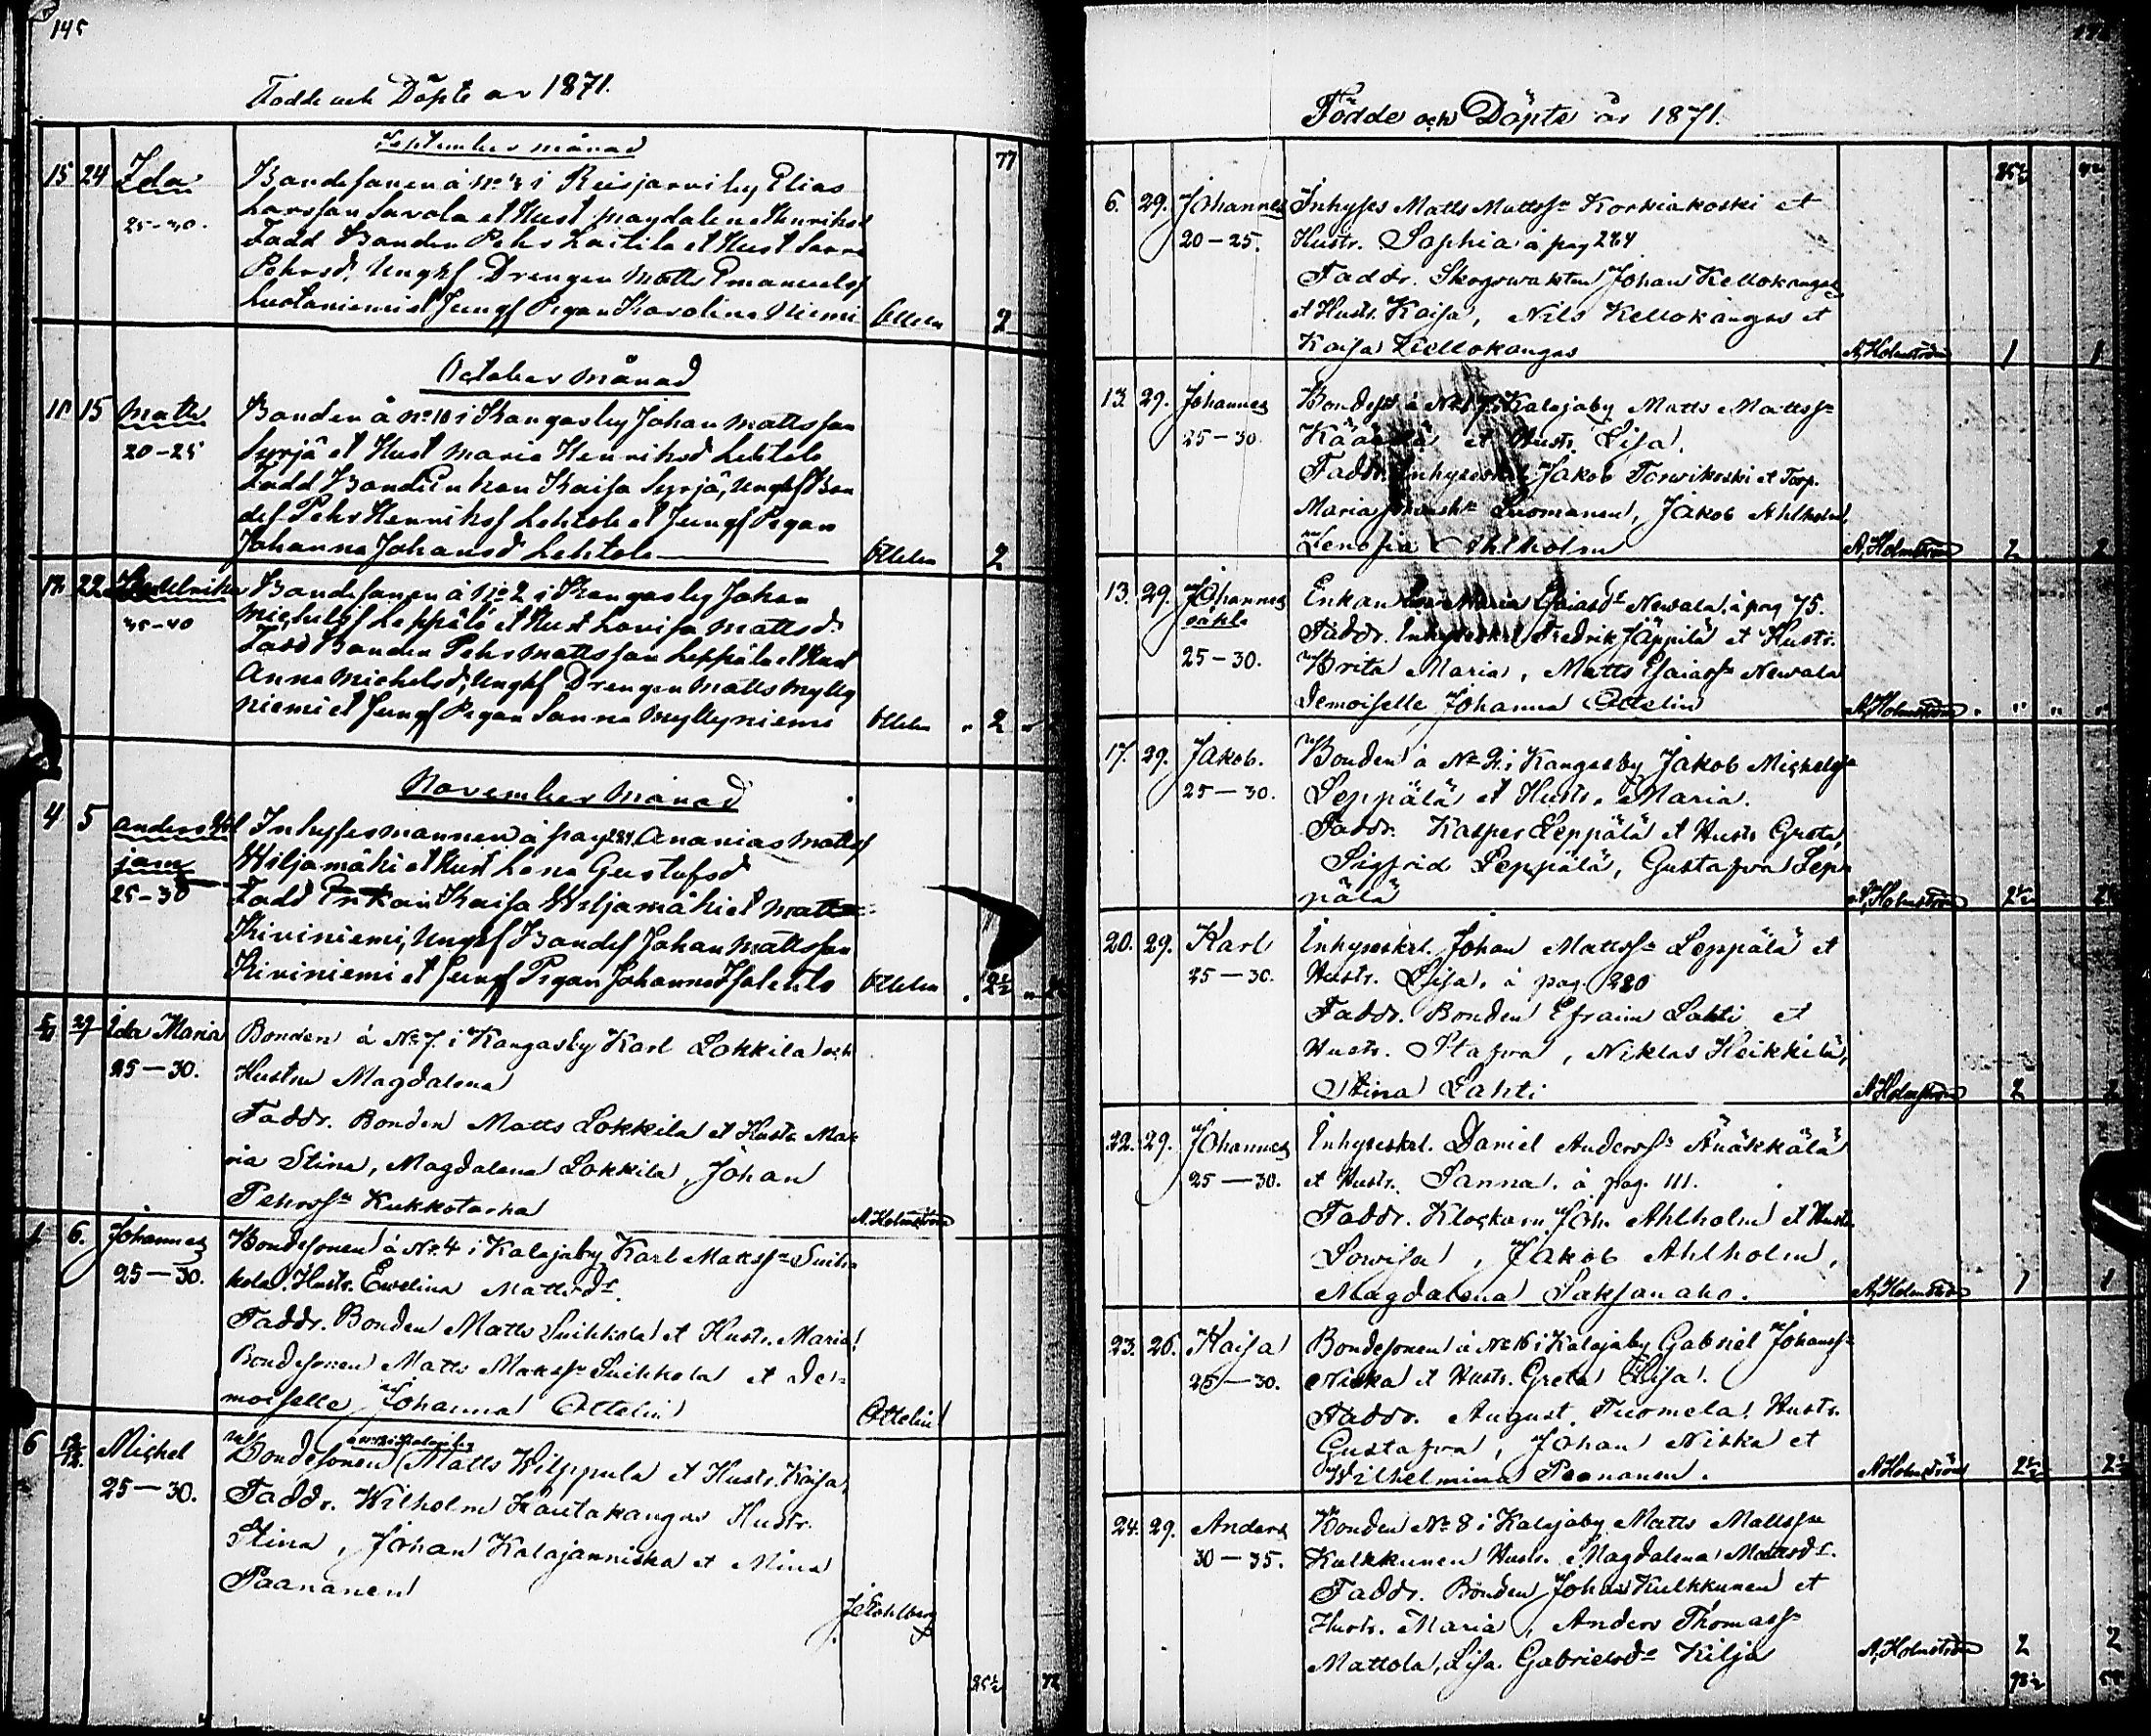 145
Födde och Döpte år 1871.
September månad
77
15 24 Ida Bondesonen å No 3 i Reisjärvi by Elias
25-30. Larsson Savola et Hust Magdalena Henriksd
Fadd Bonden Pehr Laitila et Hust
Pehrsd, Unghs Drengen Matts Emanuelss
et Jungf Pigan Karolina Niemi Ottelin 2
October månad
15 Matts Bonden å No 10 i Kangasby Johan Mattsson
20-25 Syrjä et Hust Maria Henriksd Lehtola
Fadd Bond Enkan Kaisa Syrjä, Unghs Bon
des Pehr Henrikss Lehtola et Jungf Pigan
Johanna Johansd Lehtola Ottelin 2
22 Bondesonen å No 2 i Kangasby Johan
35-40 Michelss Leppälä et Hust Lovisa Mattsd
Fadd Bonden Pehr Mattsson Leppälä et Hust
Anna Michelsd, Unghs Drengen Matts Mylly
niemi et Jungf Pigan Sanna Myllyniemi Ottelin 2
November månad
4 5 Anders Wil Inhysesmannen å pag 284 Ananias Mattss
jam Wiljamäki et Hust Lena Gustafsd
25-30 Fadd Enkan Kaisa Wiljamäki et Matts
Kiviniemi, Unghs Bondes Johan Mattsson
Kiviniemi et Jungf Pigan Johanna Isolehto Ottelin 2½
Ida Maria Bonden å No 7 i Kangasby Karl Lokkila och
25-30. Hustru Magdalena
Faddr. Bonden Matts Lokkila et Hustr Ma-
ria Stina, Magdalena Lokkila, Johan
Pehrss Kukkotarha A. Holmström
1 6. Johannes Bondesonen å No 4 i Kalajaby Karl Matss Suih-
25-30. kola Hustr. Ewelina Mattsd.
Faddr. Bonden Matts Suihkola et Hustr. Maria,
Bondesonen Matts Matss Suihkola et de-
moiselle Johanna Ottelin Ottelin
6 Michel Bondesonen Matts Wilppula et Hustr. Kaisa,
25-30. Faddr. Wilhelm Hautakangas Hustr.
Stina, Johan Kalajanniska et Mina
Paananen
J. Stohlberg
25½ 72
Födde och Döpte år 1871.
6. 29. Johannes Inhyses Matts Mattss Korkiakoski et
20-25. Hustr. Sophia å pag 284
Faddr. Skogswakten Johan Kellokangas
et Hustr. Kaisa, Nils Kellokangas et
Kaisa Kellokangas A, Holmström 1 1
13. 29. Johannes Bondes å No 17 i Kalajaby Matts Mattss
25-30. et Hustr. Lisa.
Faddr. Inhyseskrl. Jakob Torwikoski et Torp.
Maria Luomanen, Jakob Ahlholm,
Lenosia Ahlholm A, Holmström 2 2
13. 29. Johannes Enkan Maria Esaiasd Newala, å pag 75.
oäkt. Faddr. Inhyseskrl Fredrik Jäppilä et Hustr.
25-30. Brita Maria, Matts Esaiass Newala
Demoiselle Johanna Ottelin A, Holmström
17. 29. Jakob. Bonden å No 2. i Kangasby Jakob Michelss
25-30. Leppälä et Hustr. Maria.
Faddr. Kasper Leppälä et Hustr Greta,
Sigfrid Leppälä, Gustafva Lep-
pälä A, Holmström 2½ 2½
20. 29. Karl Inhyseskrl. Johan Mattss Leppälä et
25-30. Hustr. Lisa. å pag. 280
Faddr. Bonden Efraim Lahti et
Hustr. Stafva, Niklas Heikkilä,
Stina Lahti A Holmström 2 2
22. 29. Johannes Inhyseskrl. Daniel Anderss Änäkkälä
25-30. et Hustr. Sanna. å pag. 111.
Faddr. Klockarn Joh. Ahlholm et Hustr
Lowisa, Jakob Ahlholm,
Magdalena Saksanaho. A, Holmström 1 1
23. 26. Kaisa Bondesonen å No 16 i Kalajaby Gabriel Johanss
25-30. Niska et Hustr. Greta Lisa.
Faddr. August Tuomela, Hustr.
Gustafva, Johan Niska et
Wilhelmina Paananen. A Holmström 2½ 2½
24. 29. Anders Bonden No 8 i Kalajaby Matts Mattsson
30-35. Kulkkunen Hustr. Magdalena Mattsd.
Faddr. Bonden Johan Kulkkunen et
Hustr. Maria, Anders Thomass
Mattola, Lisa Gabrielsd Kilja A, Holmström 2 2